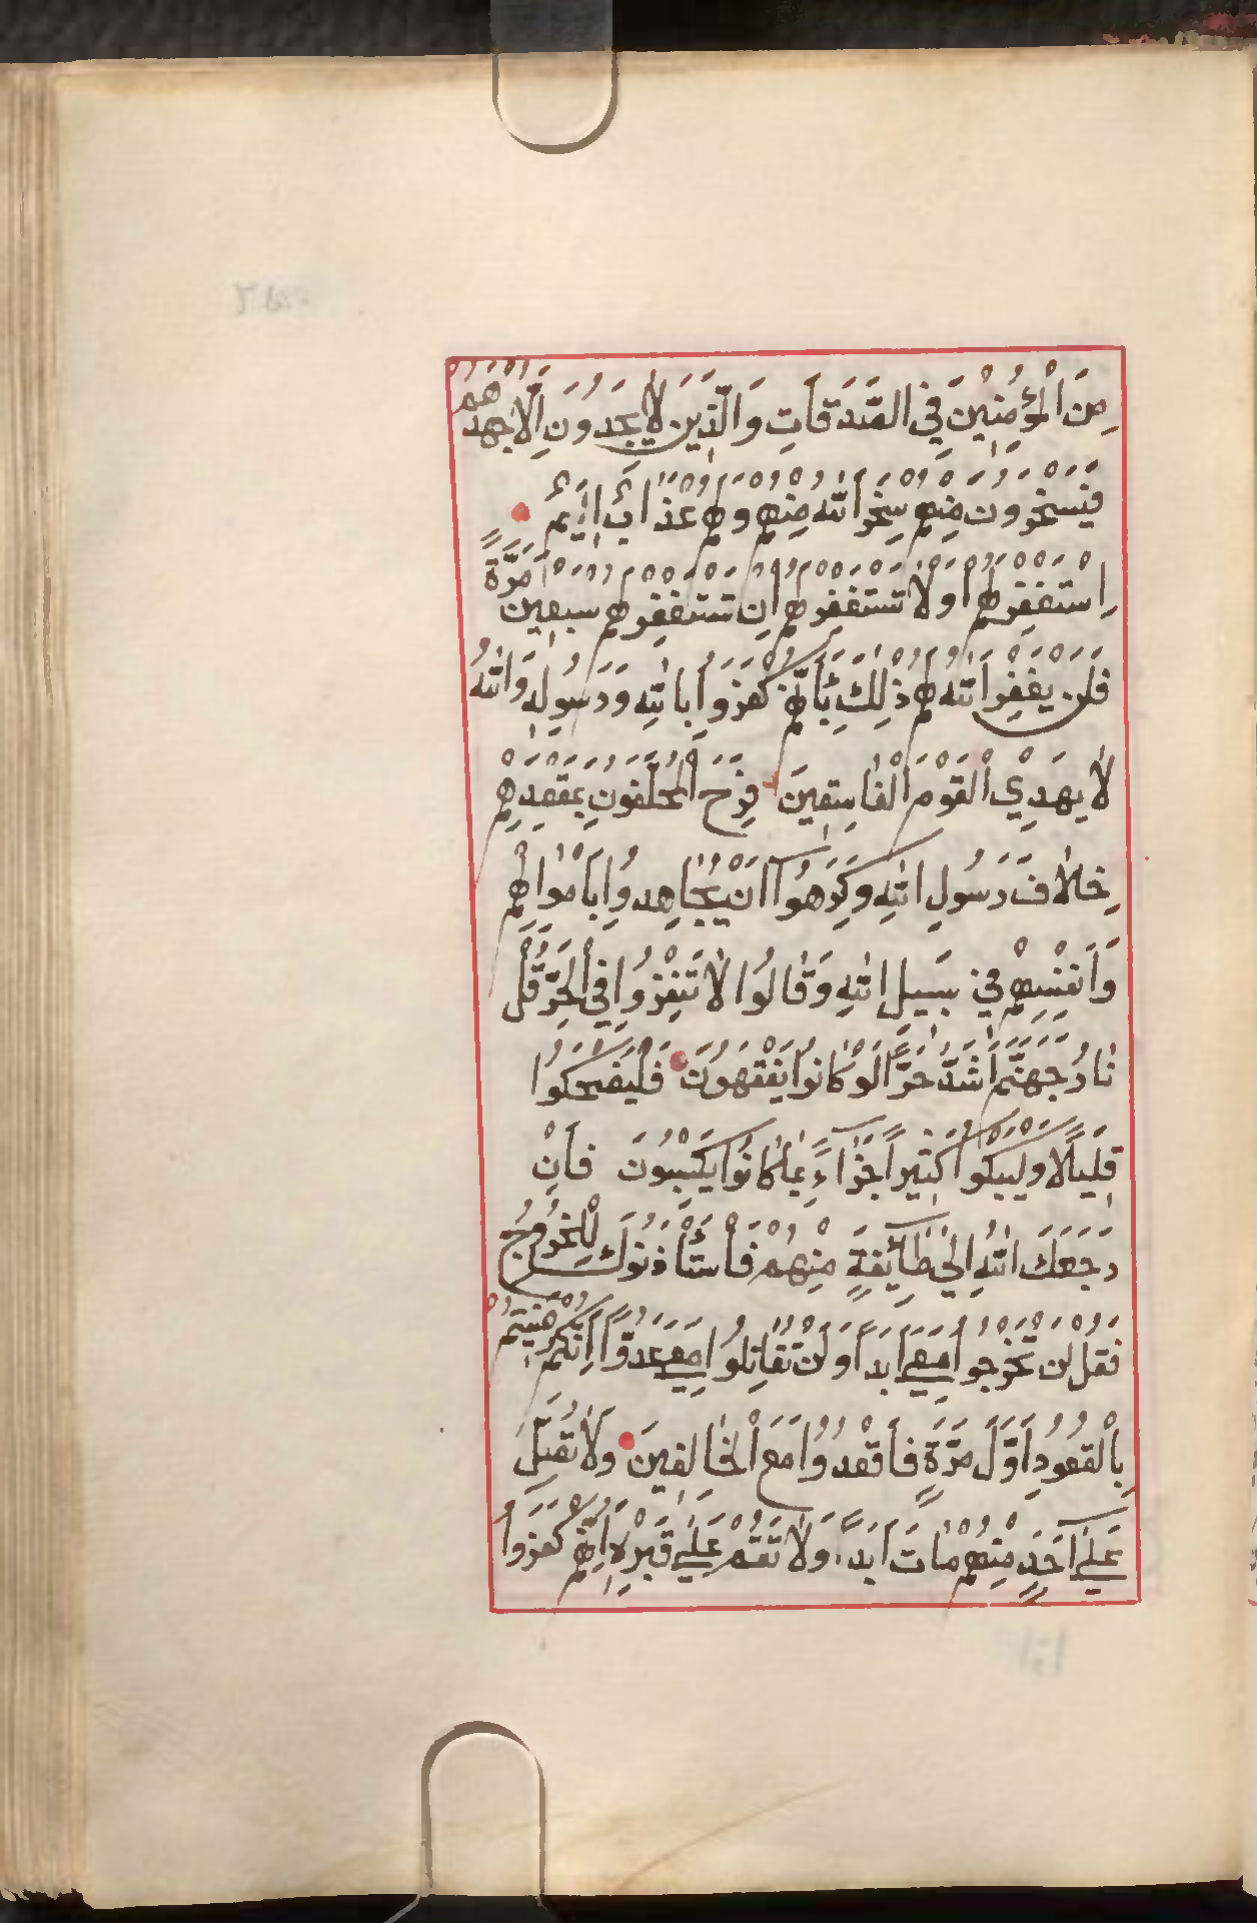 مِنَ الْمُؤْمِنِينَ فِي الصَّدَقَاتِ وَالَّذِينَ لَا يَجِدُونَ اِلَّا جُهْدَهُمْ
فَيَسْخَرُونَ مِنْهُمْ سَخِرَ اللهُ مِنْهُمْ وَلَهُمْ عَذَابٌ اَلِيمٌ
اِسْتَغْفِرْ لَهُمْ اَوْ لَا تَسْتَغْفِرْ لَهُمْ اِنْ تَسْتَغْفِرْ لَهُمْ سَبْعِينَ مَرَّةً
فَلَنْ يَغْفِرَ اللهُ لَهُمْ ذٰلِكَ بِأَنَّهُمْ كَفَرُوا بِاللهِ وَرَسُولِهِ وَاللهُ
لَا يَهْدِي الْقَوْمَ الْفَاسِقِينَ فَرِحَ الْمُخَلَّفُونَ بِمَقْعَدِهِمْ
خِلَافَ رَسُولِ اللهِ وَكَرِهُوا اَنْ يُجَاهِدُوا بِاَمْوَالِهِمْ
وَاَنْفُسِهِمْ فِي سَبِيلِ اللهِ وَقَالُوا لَا تَنْفِرُوا فِي الْحَرِّ قُلْ
نَارُ جَهَنَّمَ اَشَدُّ حَرًّا لَوْ كَانُوا يَفْقَهُونَ فَلْيَضْحَكُوا
قَلِيلًا وَلْيَبْكُوا كَثِيرًا جَزَاءً بِمَا كَانُوا يَكْسِبُونَ فَاِنْ
رَجَعَكَ اللهُ اِلٰى طَائِفَةٍ مِنْهُمْ فَاسْتَأْذَنُوكَ لِلْخُرُوجِ
فَقُلْ لَنْ تَخْرُجُوا مَعِيَ اَبَدًا وَلَنْ تُقَاتِلُوا مَعِيَ عَدُوًّا اِنَّكُمْ رَضِيتُمْ
بِالْقُعُودِ اَوَّلَ مَرَّةٍ فَاقْعُدُوا مَعَ الْخَالِفِينَ وَلَا تُصَلِّ
عَلٰى اَحَدٍ مِنْهُمْ مَاتَ اَبَدًا وَلَا تَقُمْ عَلٰى قَبْرِهِ اِنَّهُمْ كَفَرُوا